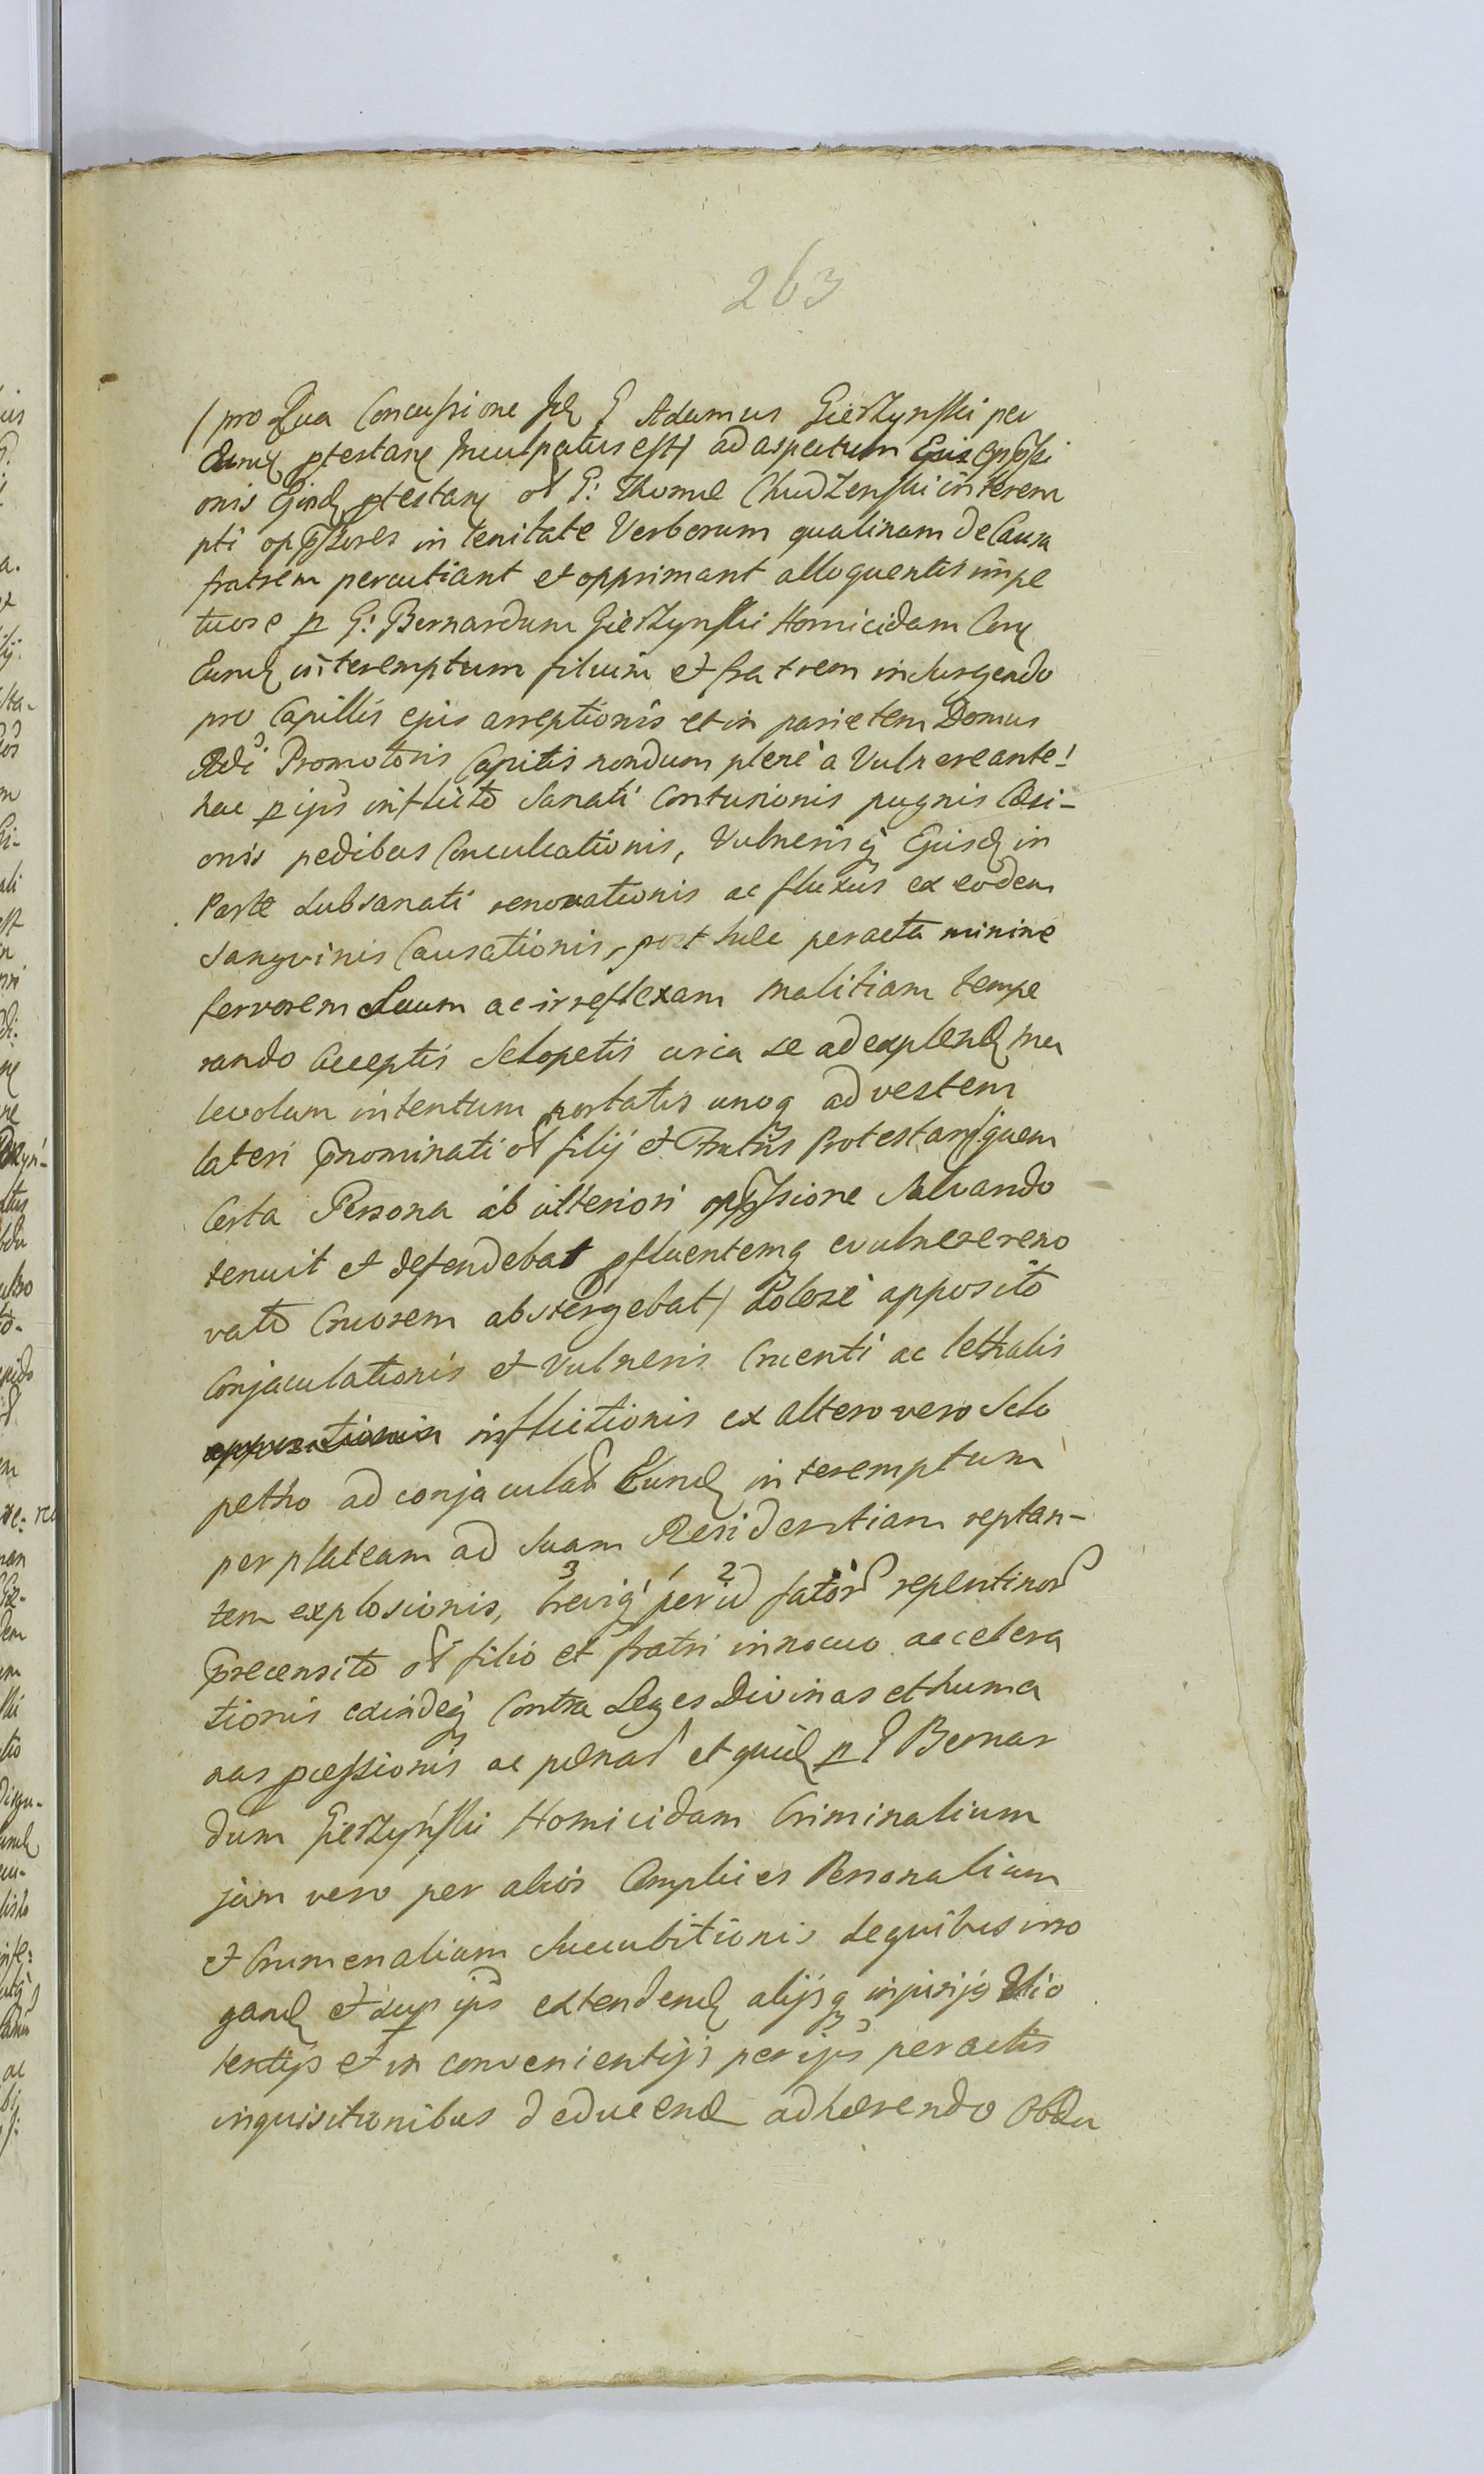 263
(pro qua Concussione id G Adamus Gierżynski per
Eund ptestan inculpatus est) ad aspectum Ejus oppssi
onis Ejusd ptestan ol G: Thomæ Chudzenski interem
pti oppssores in lenitate Verborum qualinam de Causa
fratrem percutiant et opprimant alloquentis impe
tuose p G: Bernardum Gierzynski Homicidam
Eund interemptum filium et fratrem insurgendo
pro Capillis ejus arreptionis et in parietem Domus
Rdi Promotoris Capitis nondum plene a Vulnere ante
hac p ips inflicto Sanati Contusionis pugnis Cæsi-
onis pedibus Conculcationis, Vulnerisq Ejusd in
Parte subsanati renovationis ac fluxus ex eodem
Sangvinis Causationis, post hæc peracta minime
fervorem Suum ac irreflexam malitiam tempe
rando acceptis Sclopetis circa se ad explend ma
levolum intentum portatis unoq ad vestem
lateri pnominati ol filij et Fratris Protestan (quem
Certa Persona ab ulteriori oppssione Salvando
tenuit et defendebat pfluentemq e vulnere reno
vato Cruorem abstergebat) Dolose apposito
Conjaculationis et Vulneris Cruenti ac lethalis
inflictionis ex altero vero Sclo
petho ad conjaculad Eund interemptum
per plateam ad Suam Residentiam reptan-
3 1 2
tem explosionis, breviq per id fator repentinor
precensito ol filio et fratri innocuo accelera
tionis exindeq Contra Leges Divinas et huma
nas pcessionis ac pænar et quid p G Bernar
dum Gierzyński Homicidam Criminalium
jam vero per alios Complices Personalium
et Crumenalium Succubitionis de quibus irro
gand et sup ips extendend alijsq injurijs Vio
lentijs et in convenientijs per ips peractis
inquisitionibus deducend adhærendo Obdu